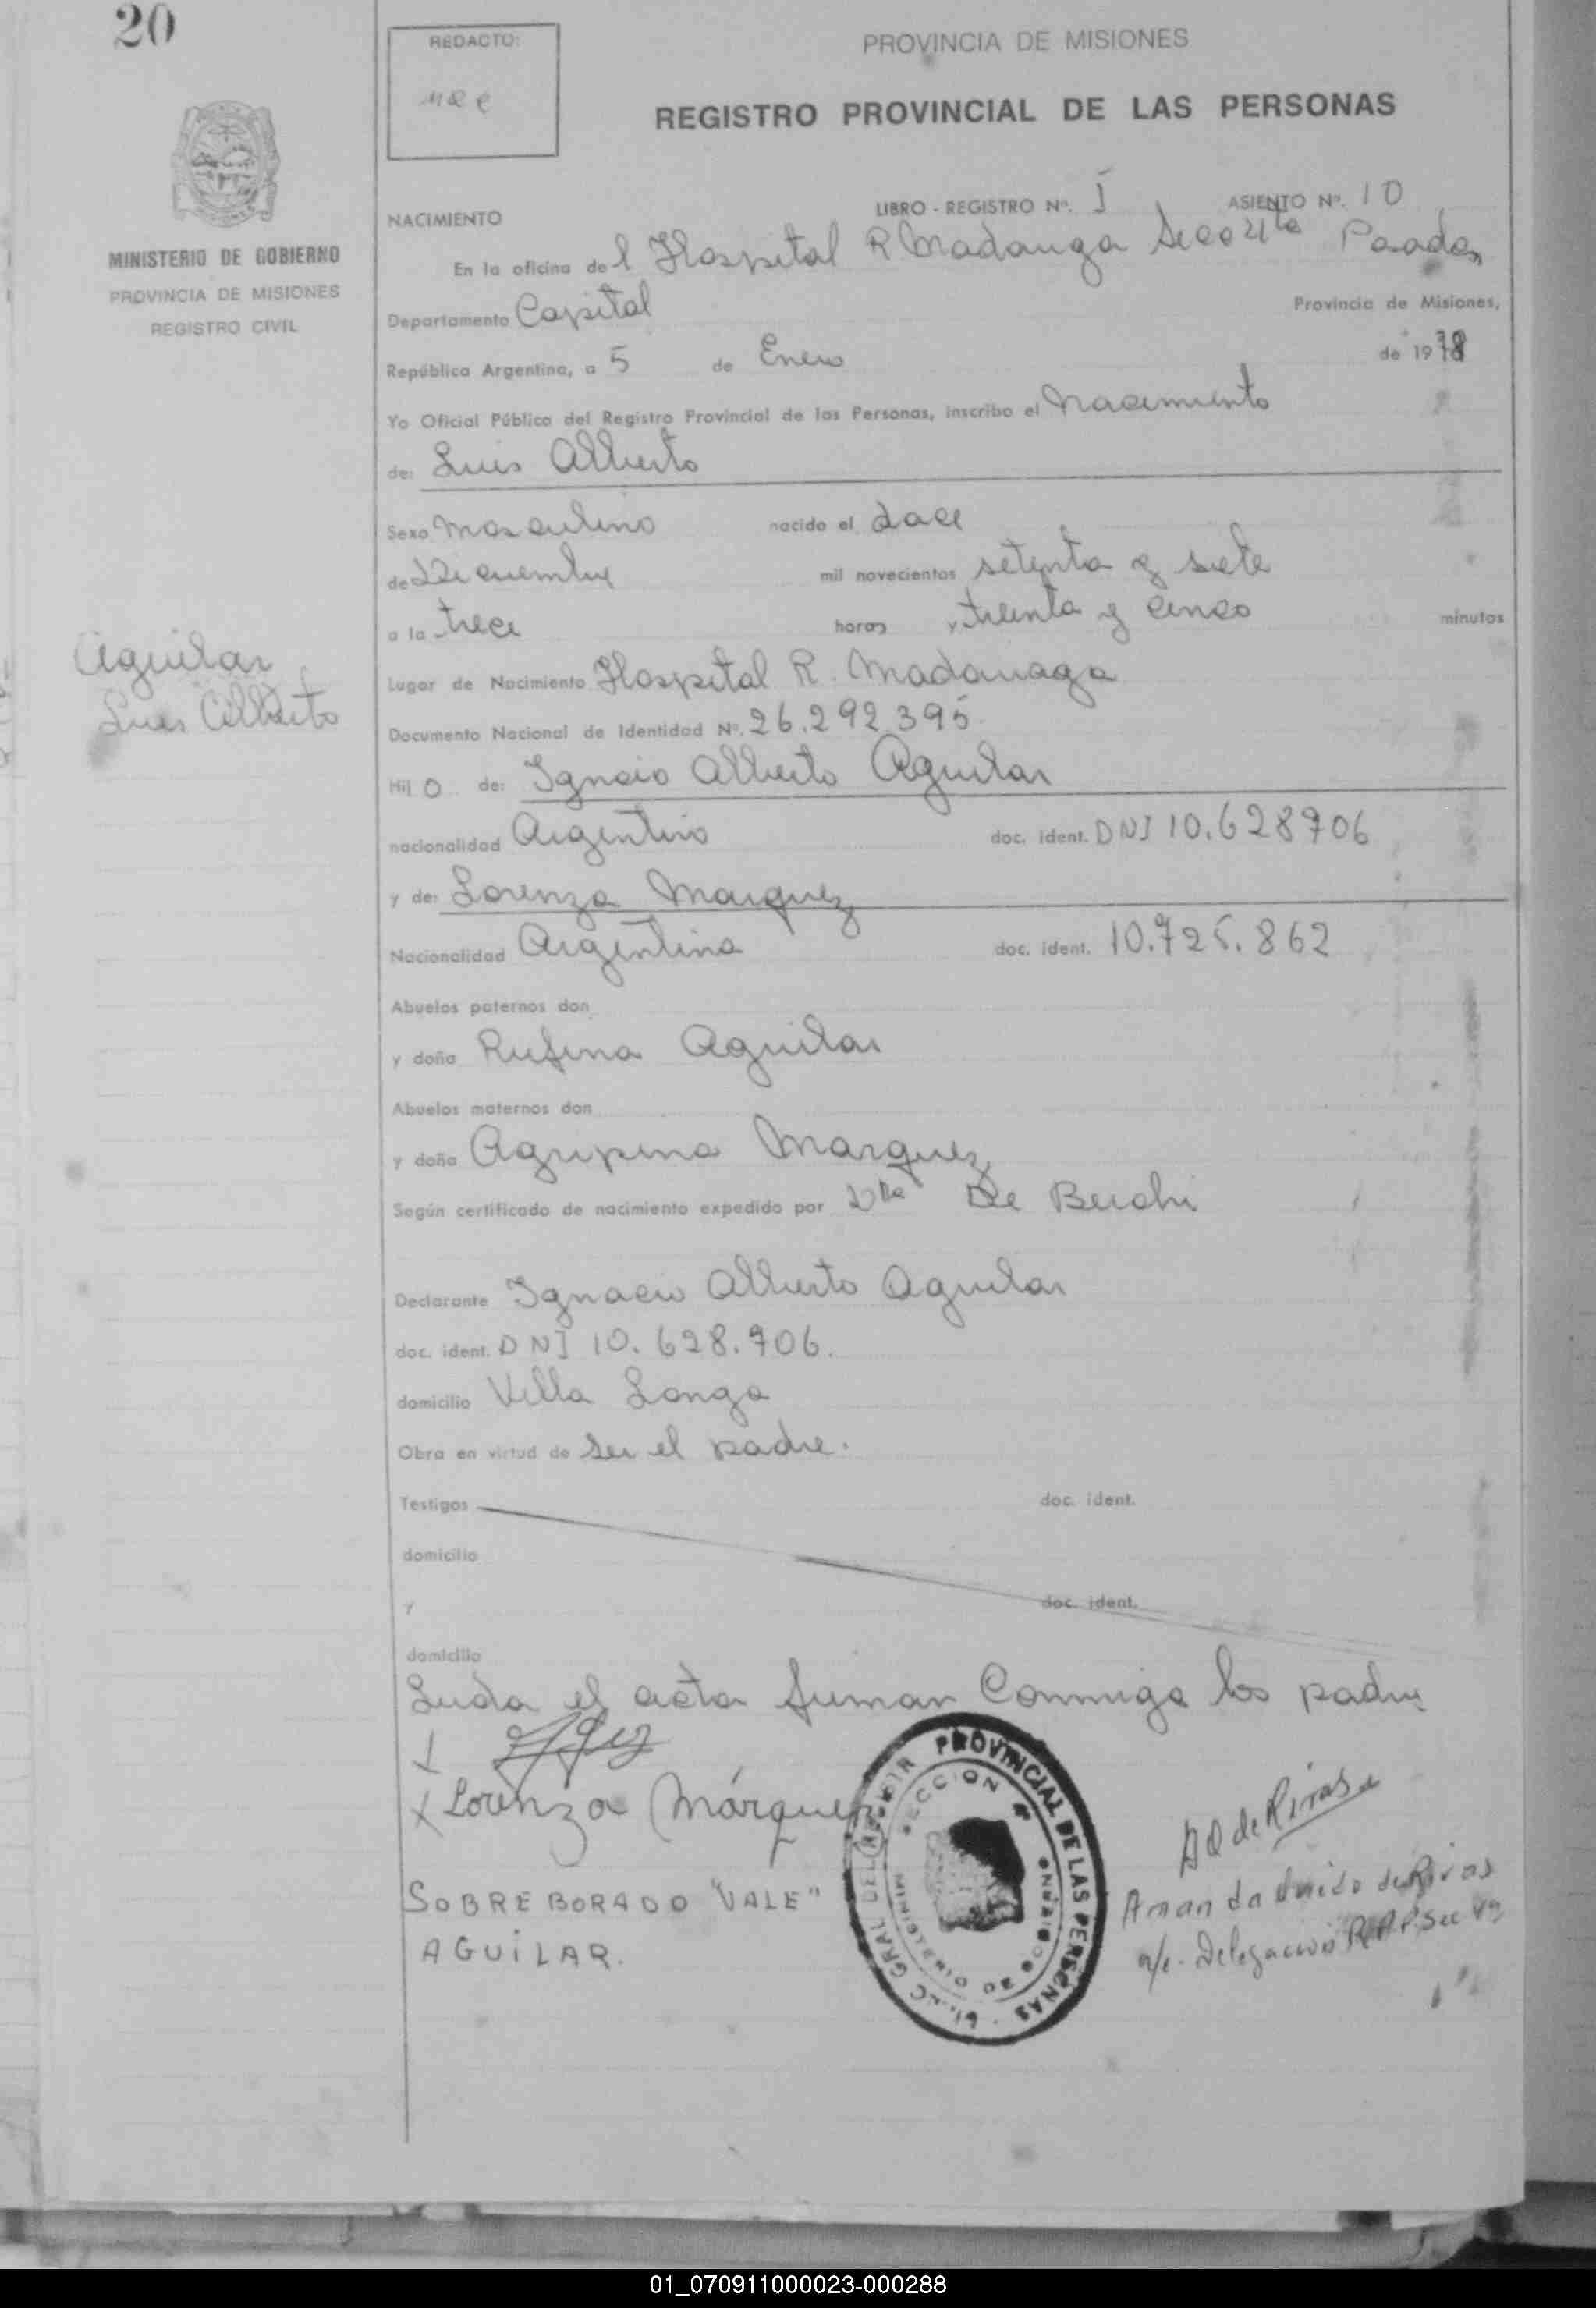 20
REDACTO:
PROVINCIA DE MISIONES
REGISTRO PROVINCIAL DE LAS PERSONAS
MINISTERIO DE GOBIERNO
PROVINCIA DE MISIONES
REGISTRO CIVIL
NACIMIENTO
LIBRO - REGISTRO Nº. I ASIENTO Nº. 10
En la oficina del Hospital R Madariaga Secc 4ta Posadas
Departamento Capital Provincia de Misiones,
República Argentina, a 5 de Enero de 1978
Yo Oficial Público del Registro Provincial de las Personas, inscribo el Nacimiento
de: Luis Alberto
Sexo Masculino nacido el doce
de Diciembre mil novecientos setenta y siete
a la trece horas y treinta y cinco minutos
Aguilar
Luis Alberto
Lugar de Nacimiento Hospital R. Madariaga
Documento Nacional de Identidad Nº. 26.292.395
Hijo de: Ignacio Alberto Aguilar
nacionalidad Argentino doc. ident. DNI 10.628906
y de: Lorenza Marquez
Nacionalidad Argentina doc. ident. 10.725.862
Abuelos paternos don
y doña Rufina Aguilar
Abuelos maternos don
y doña Agripina Marquez
Según certificado de nacimiento expedido por Dra De
Declarante Ignacio Alberto Aguilar
doc. ident. DNI 10.628.906.
domicilio Villa Longa
Obra en virtud de ser el padre.
Testigos doc. ident.
domicilio
y doc. ident.
domicilio
Leida el acta firman Conmigo los padres
x Lorenza Márquez
SOBRE BORADO "VALE"
AGUILAR.
PROVINCIAL DE LAS PERSONAS
SECCION 4ª
MINISTERIO DE GOBIERNO
DE de Rivas
Amanda de Rivas
a/c. Delegación R.P.P. Sec 4ª
01_070911000023-000288